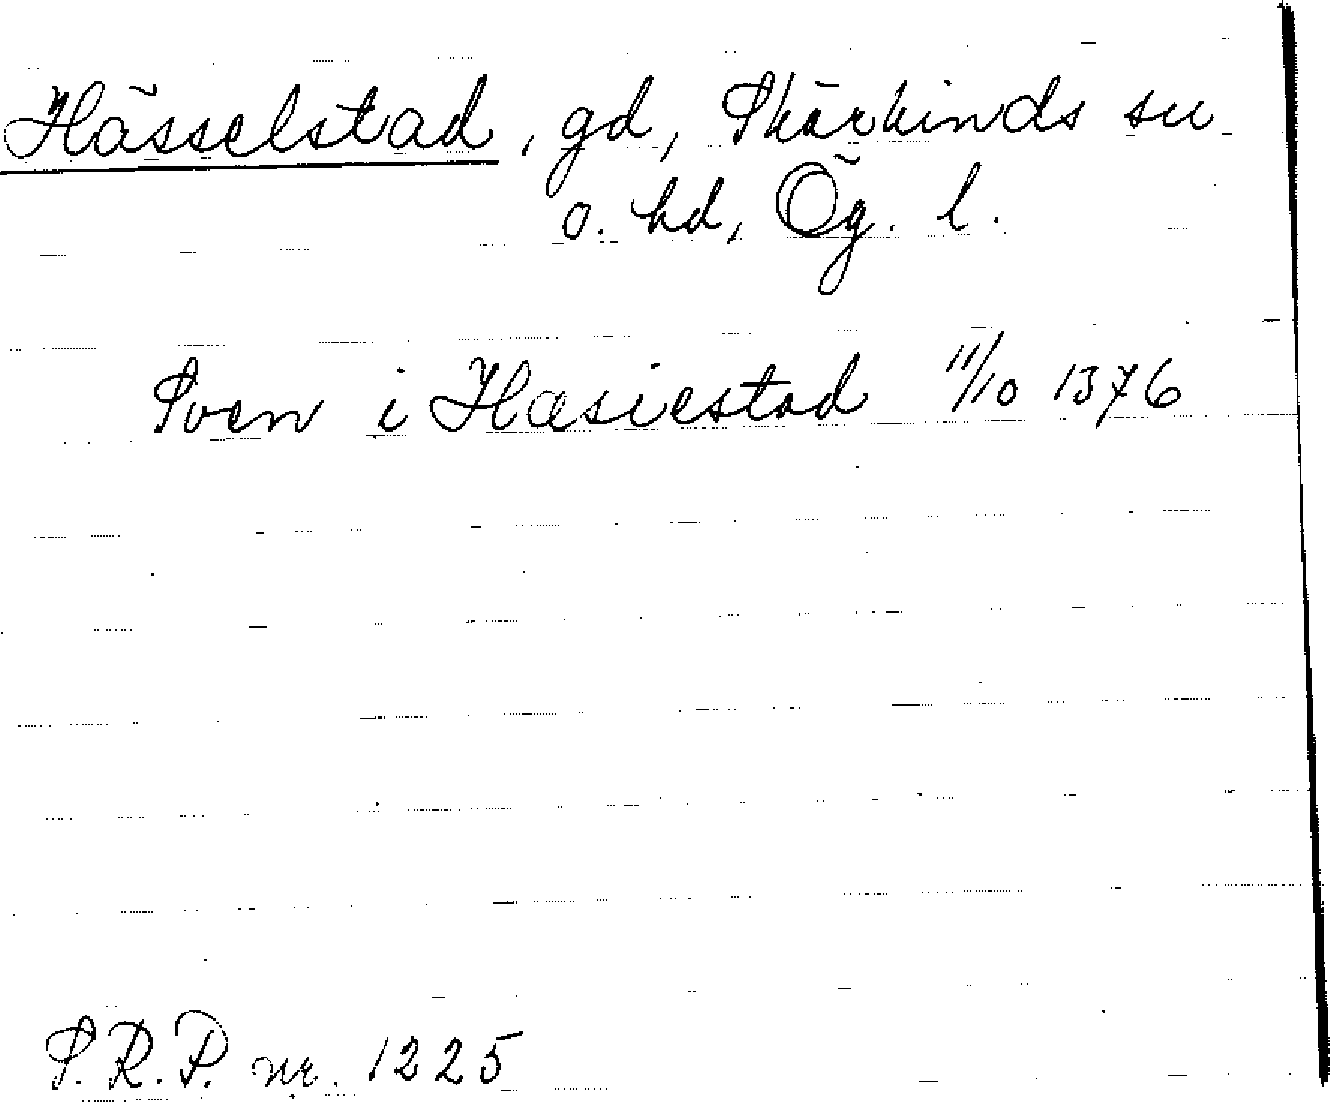 Hässelstad, gd, Skärkinds sn
o. hd, Ög. l.
Sven i Hæsiestad 11/10 1376
S.R.P. nr. 1225